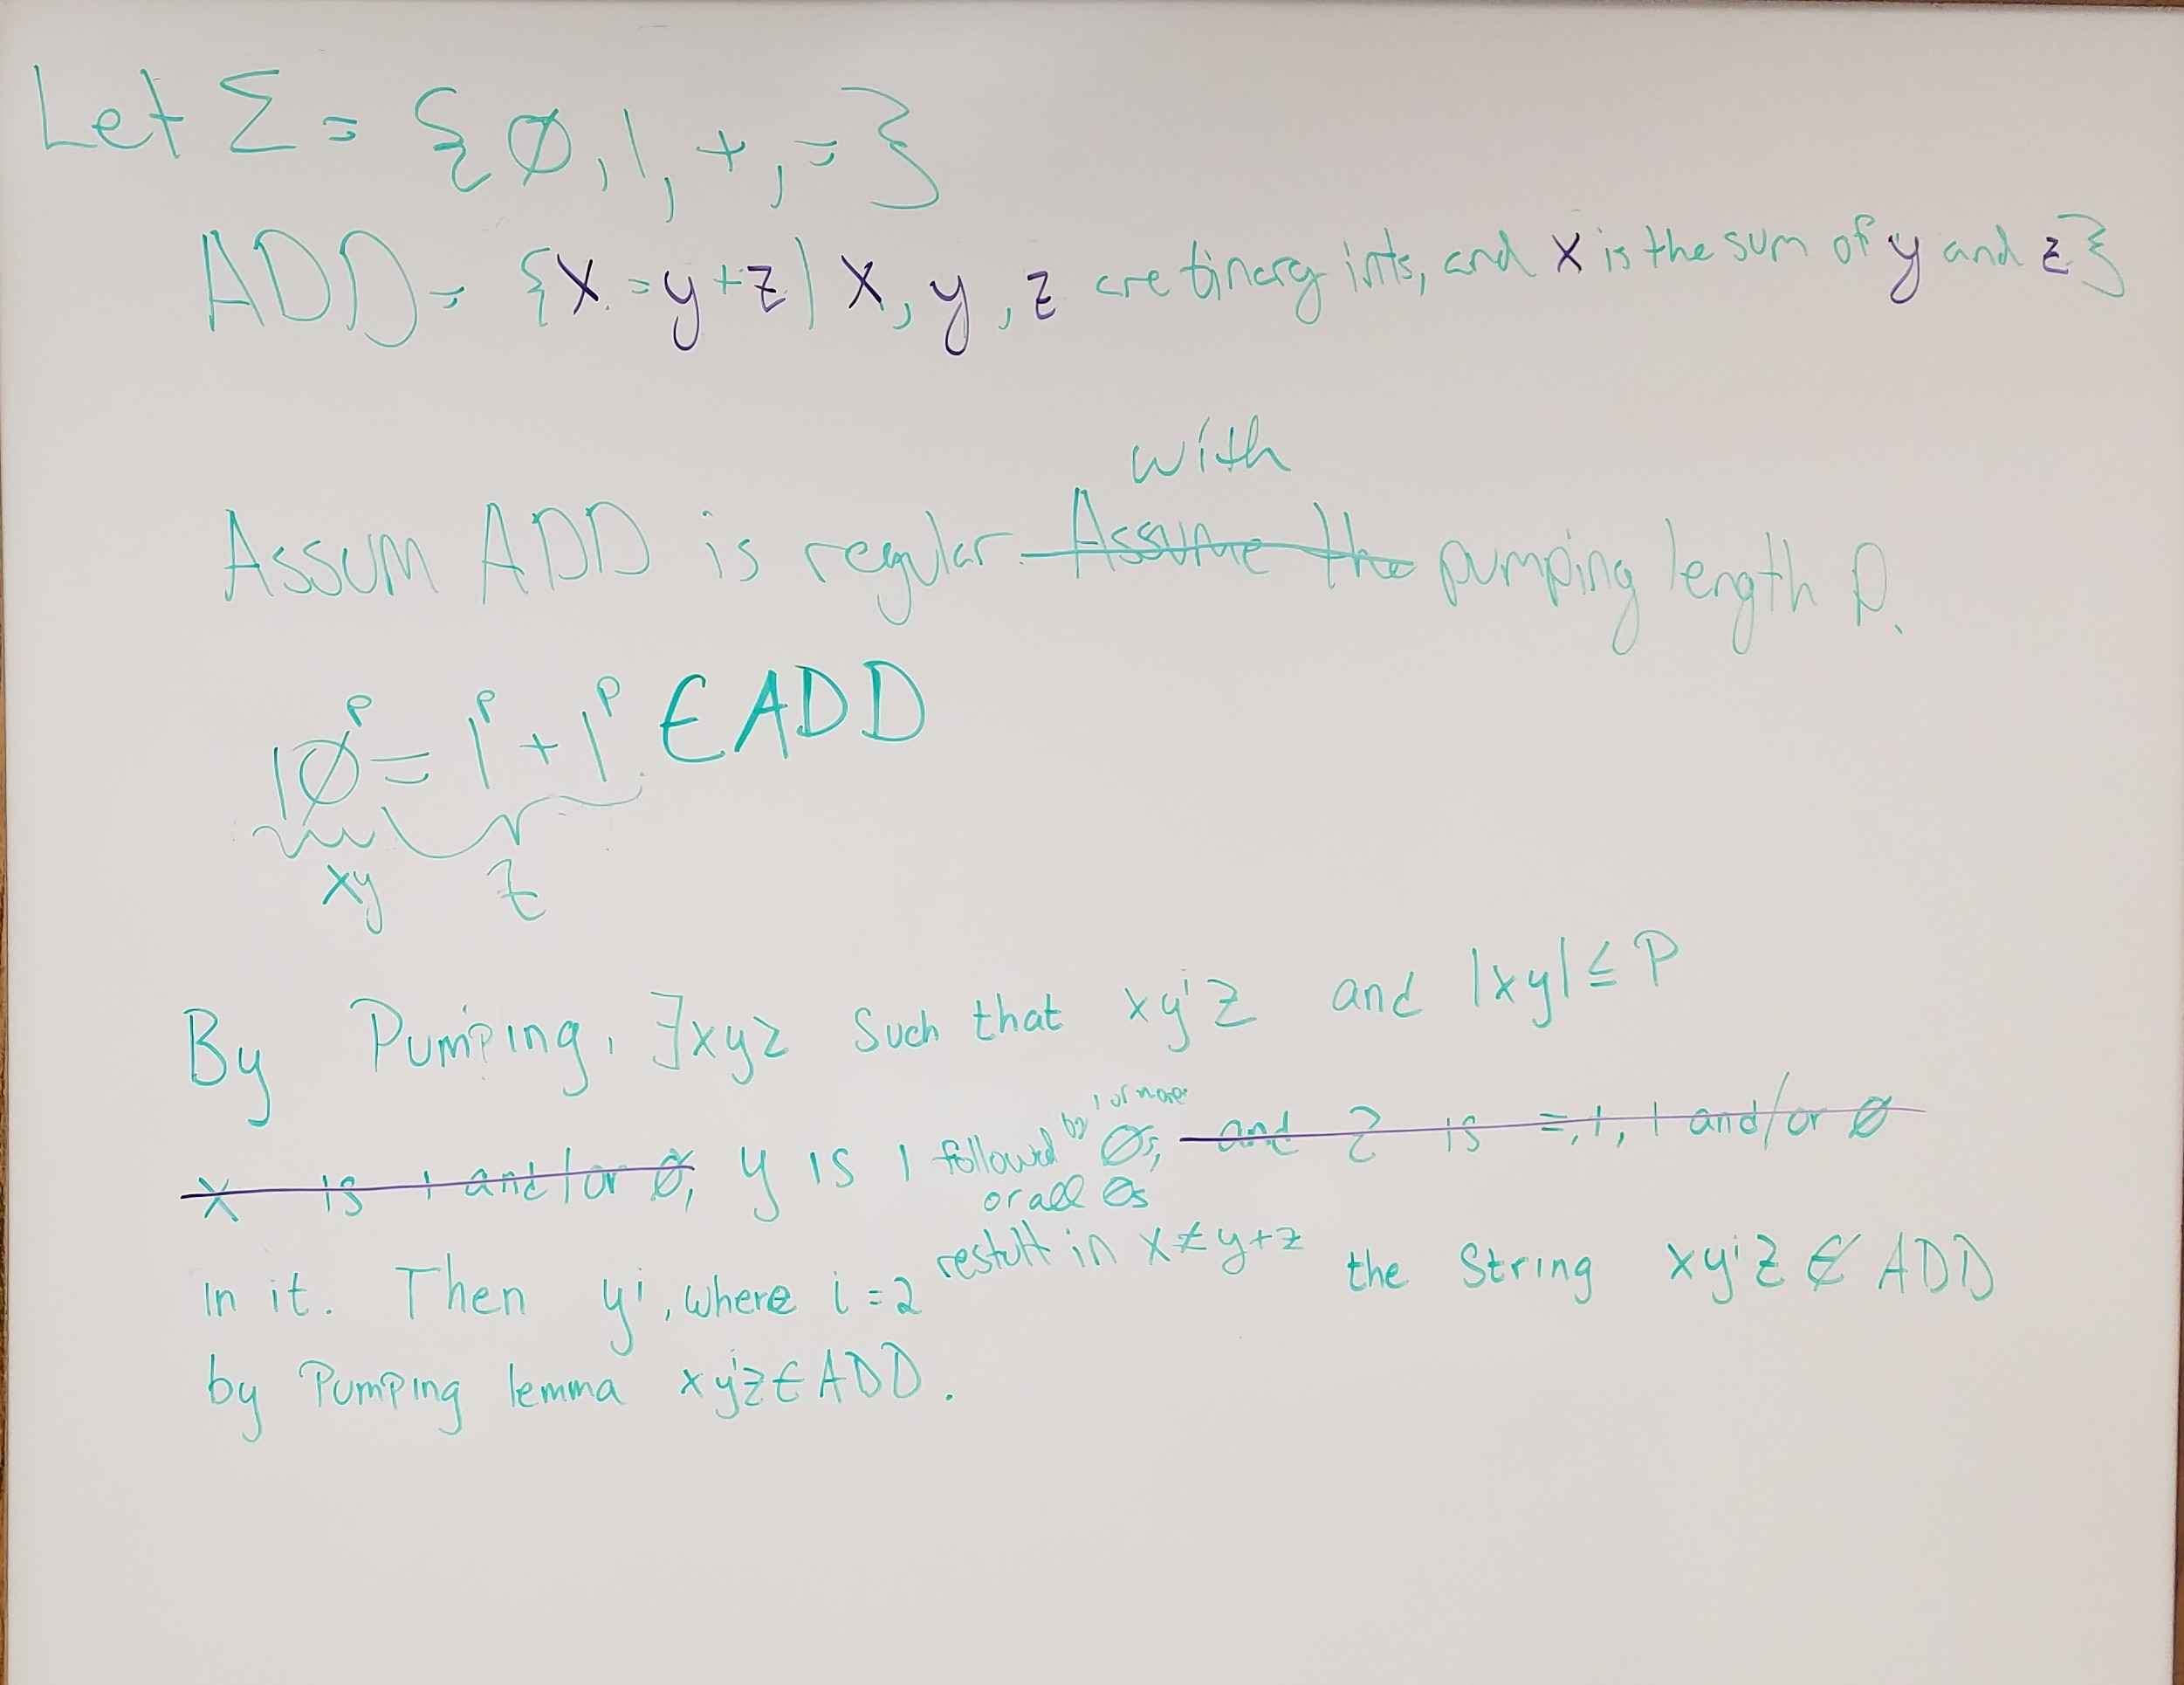 Let Σ = {Ø, 1, +, =}
ADD = {x = y + z | x, y, z are binary ints, and x is the sum of y and z}
with
Assum ADD is regular. Assume the pumping length P.
1Ø^P = 1^P + 1^P ∈ ADD
xy z
By Pumping, ∃xyz such that xy^iz and |xy| ≤ P
by 1 or more
x is 1 and/or Ø, y is 1 followed Øs, and z is =, +, 1 and/or Ø
or all Øs
result in x ≠ y + z
in it. Then y^i, where i = 2 the string xy^iz ∉ ADD
by Pumping lemma xy^iz ∈ ADD.